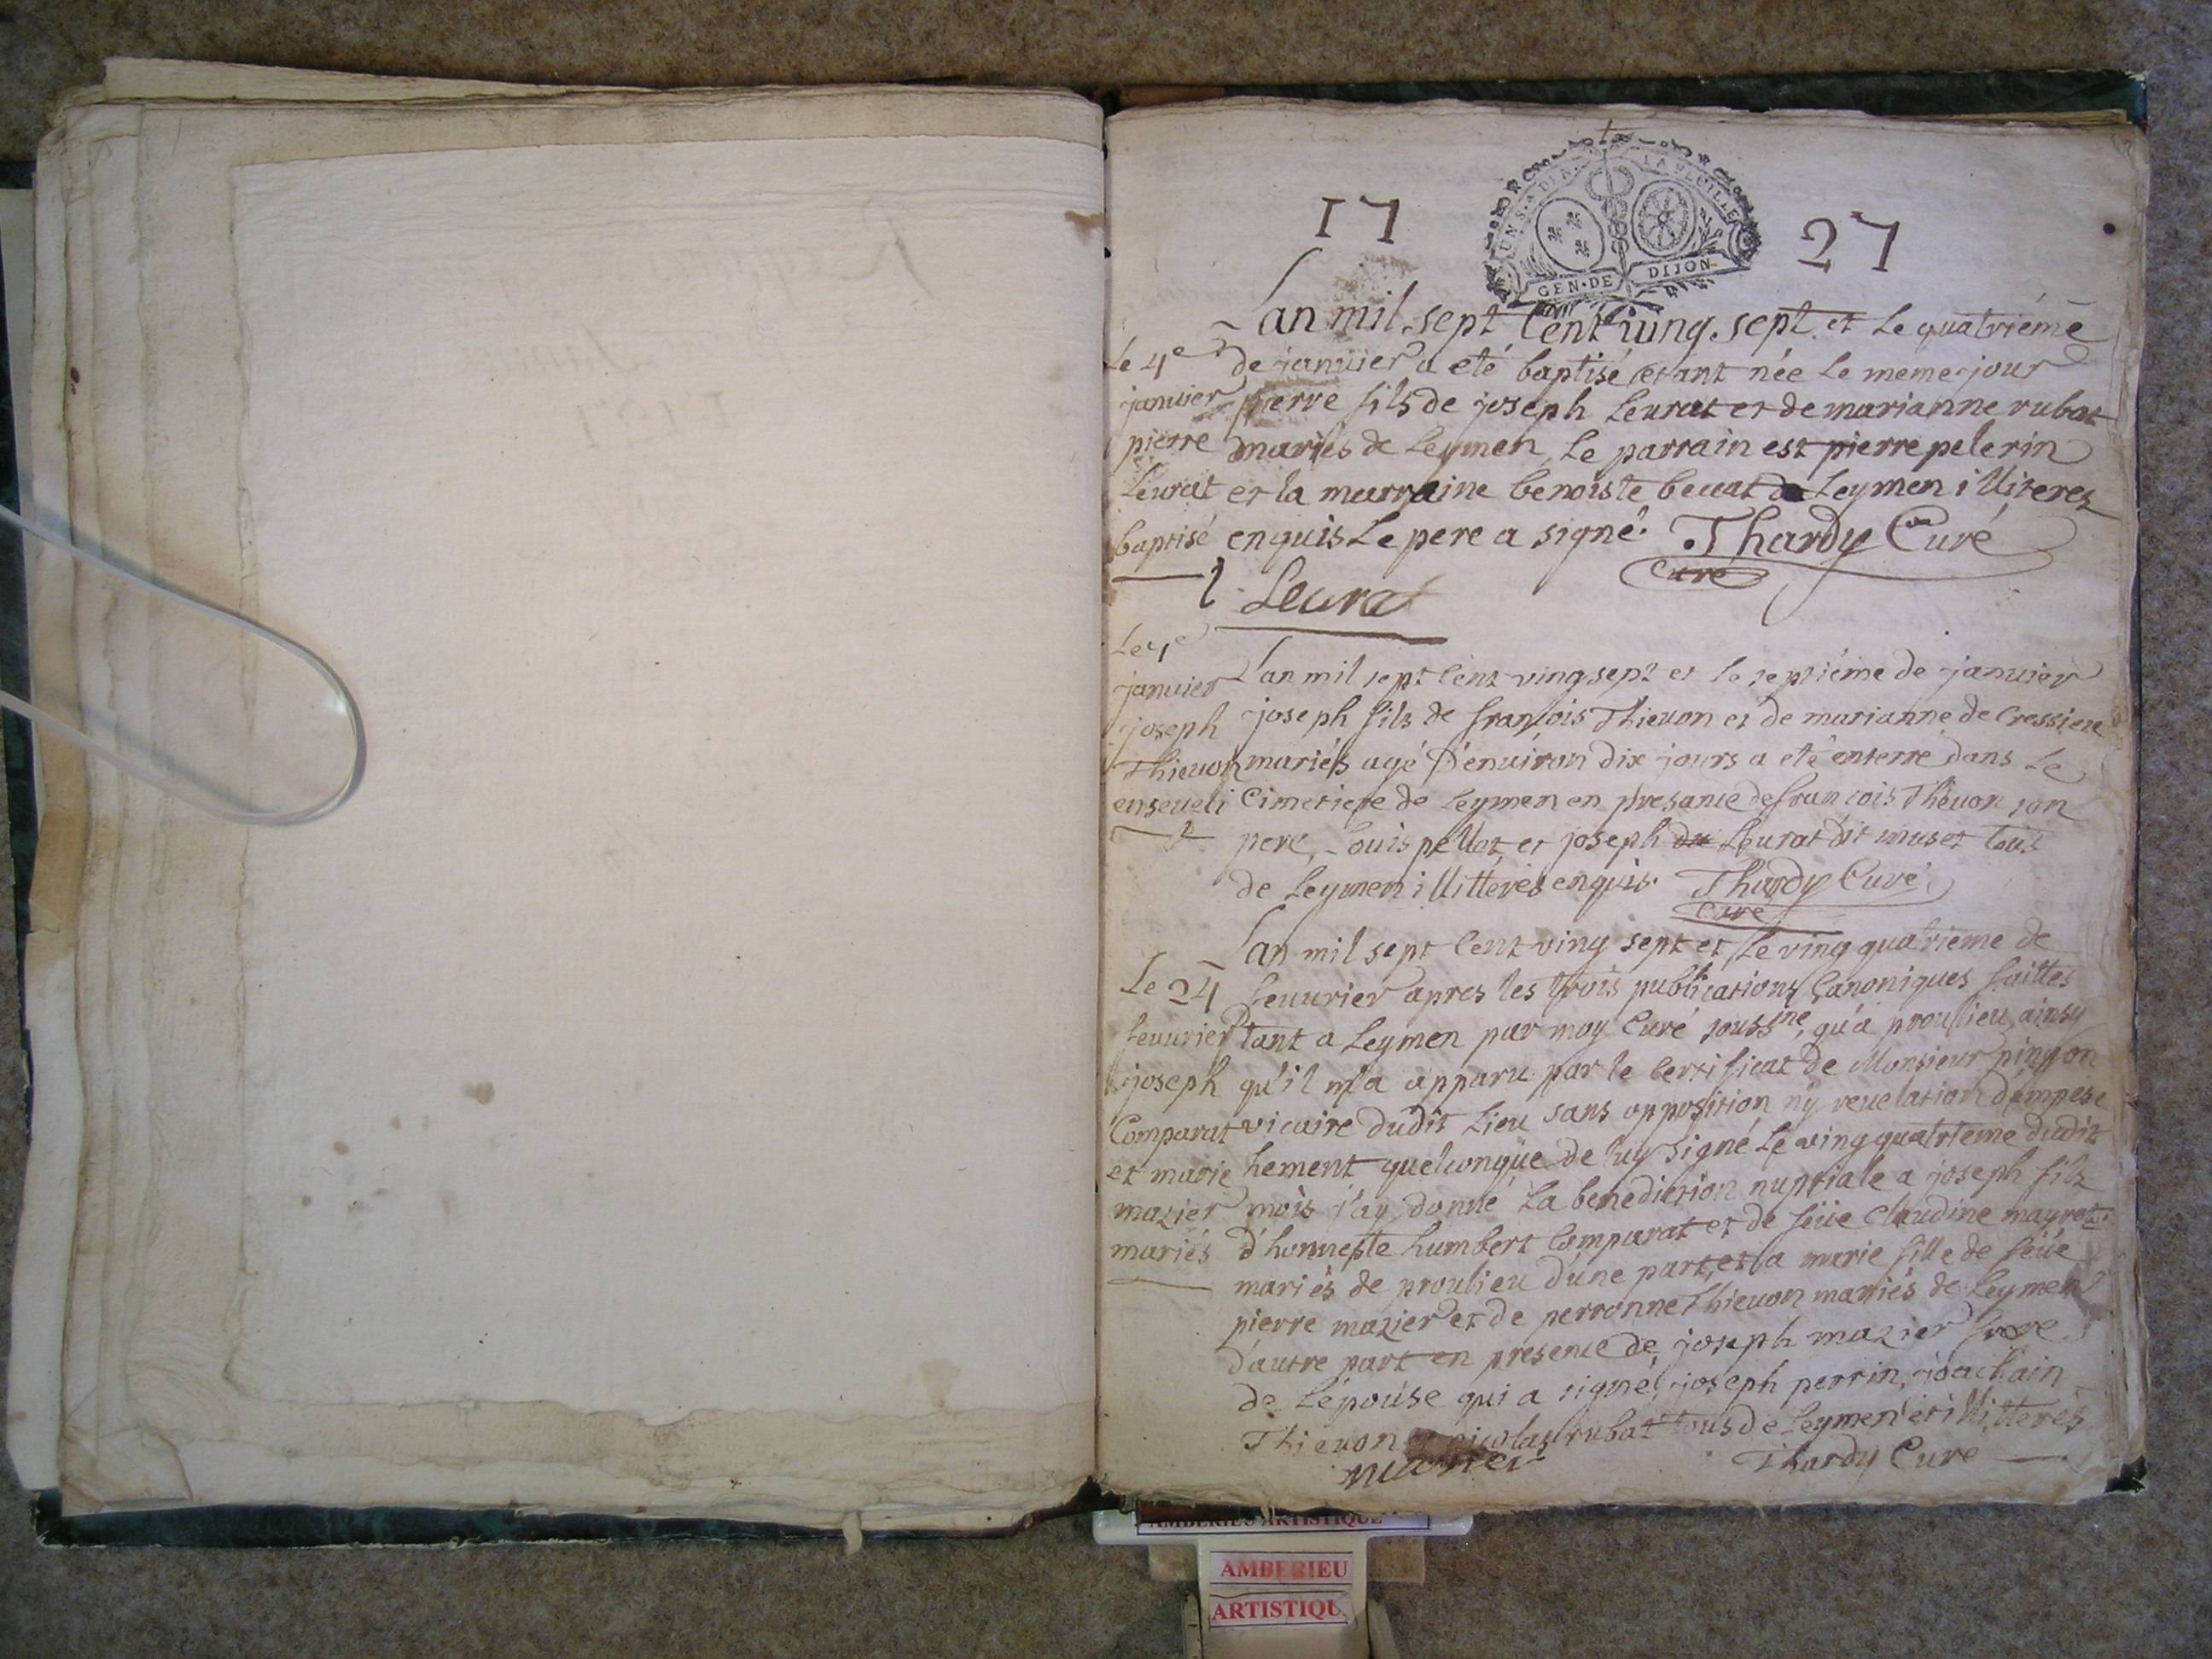 17 27
UN S. 
LA FEUILLE
GEN. DE DIJON
Lan mil sept Cent ving sept et Le quatriéme
de januier a eté baptisé etant née Le meme jour
pierre fils de joseph Leurat et de marianne rubat
mariés de Leymen, Le parrain est pierre pelerin
et la marraine benoiste beccat de Leymen illiteres
enquis Le pere a signé. Thardy Curé
Curé
Leurat
Le 4e
januier
pierre
Leurat
baptisé
1
L'an mil sept Cent ving sept et le septiéme de januier
joseph fils de francois Thieuon et de marianne de Cressiere
mariés agé D'enuiron dix jours a eté enterré dans Le
Cimetiere de Leymen en presance de francois Thieuon son
pere, Louis pellet et joseph du Leurat dit muset tous
de Leymen illitterés enquis. Thardy Curé
Curé
Le 7e
januier
joseph
Thieuon
enseueli
Lan mil sept Cent ving sept et Le ving quatrieme de
feuurier apres les trois publications Canoniques faittes
tant a Leymen par moy Curé soussne, qu'a proulieu, ainsy
qu'il m'a apparu par le Certificat de Monsieur pingon
vicaire dudit Lieu sans opposition ny reuelation d'empesc
hement quelconque de luy signé Le ving quatrieme dudit
mois j'ay donné La benediction nuptiale a joseph fils
d'honneste humbert Comparat et de feüe Claudine mayret
mariés de proulieu d'une part, et a marie fille de feüe
pierre mazier et de perronne Thieuon mariés de Leymen
d'autre part en presence de joseph mazier frere
de L'epouse qui a signé, joseph perrin, joachain
Thieuon et nicolas rubat tous de Leymen et illitterés
Thardy Curé
Le 24
feuurier
joseph
Comparat
et marie
mazier
mariés
AMBERIEU ARTISTIQUE
AMBERIEU
ARTISTIQU